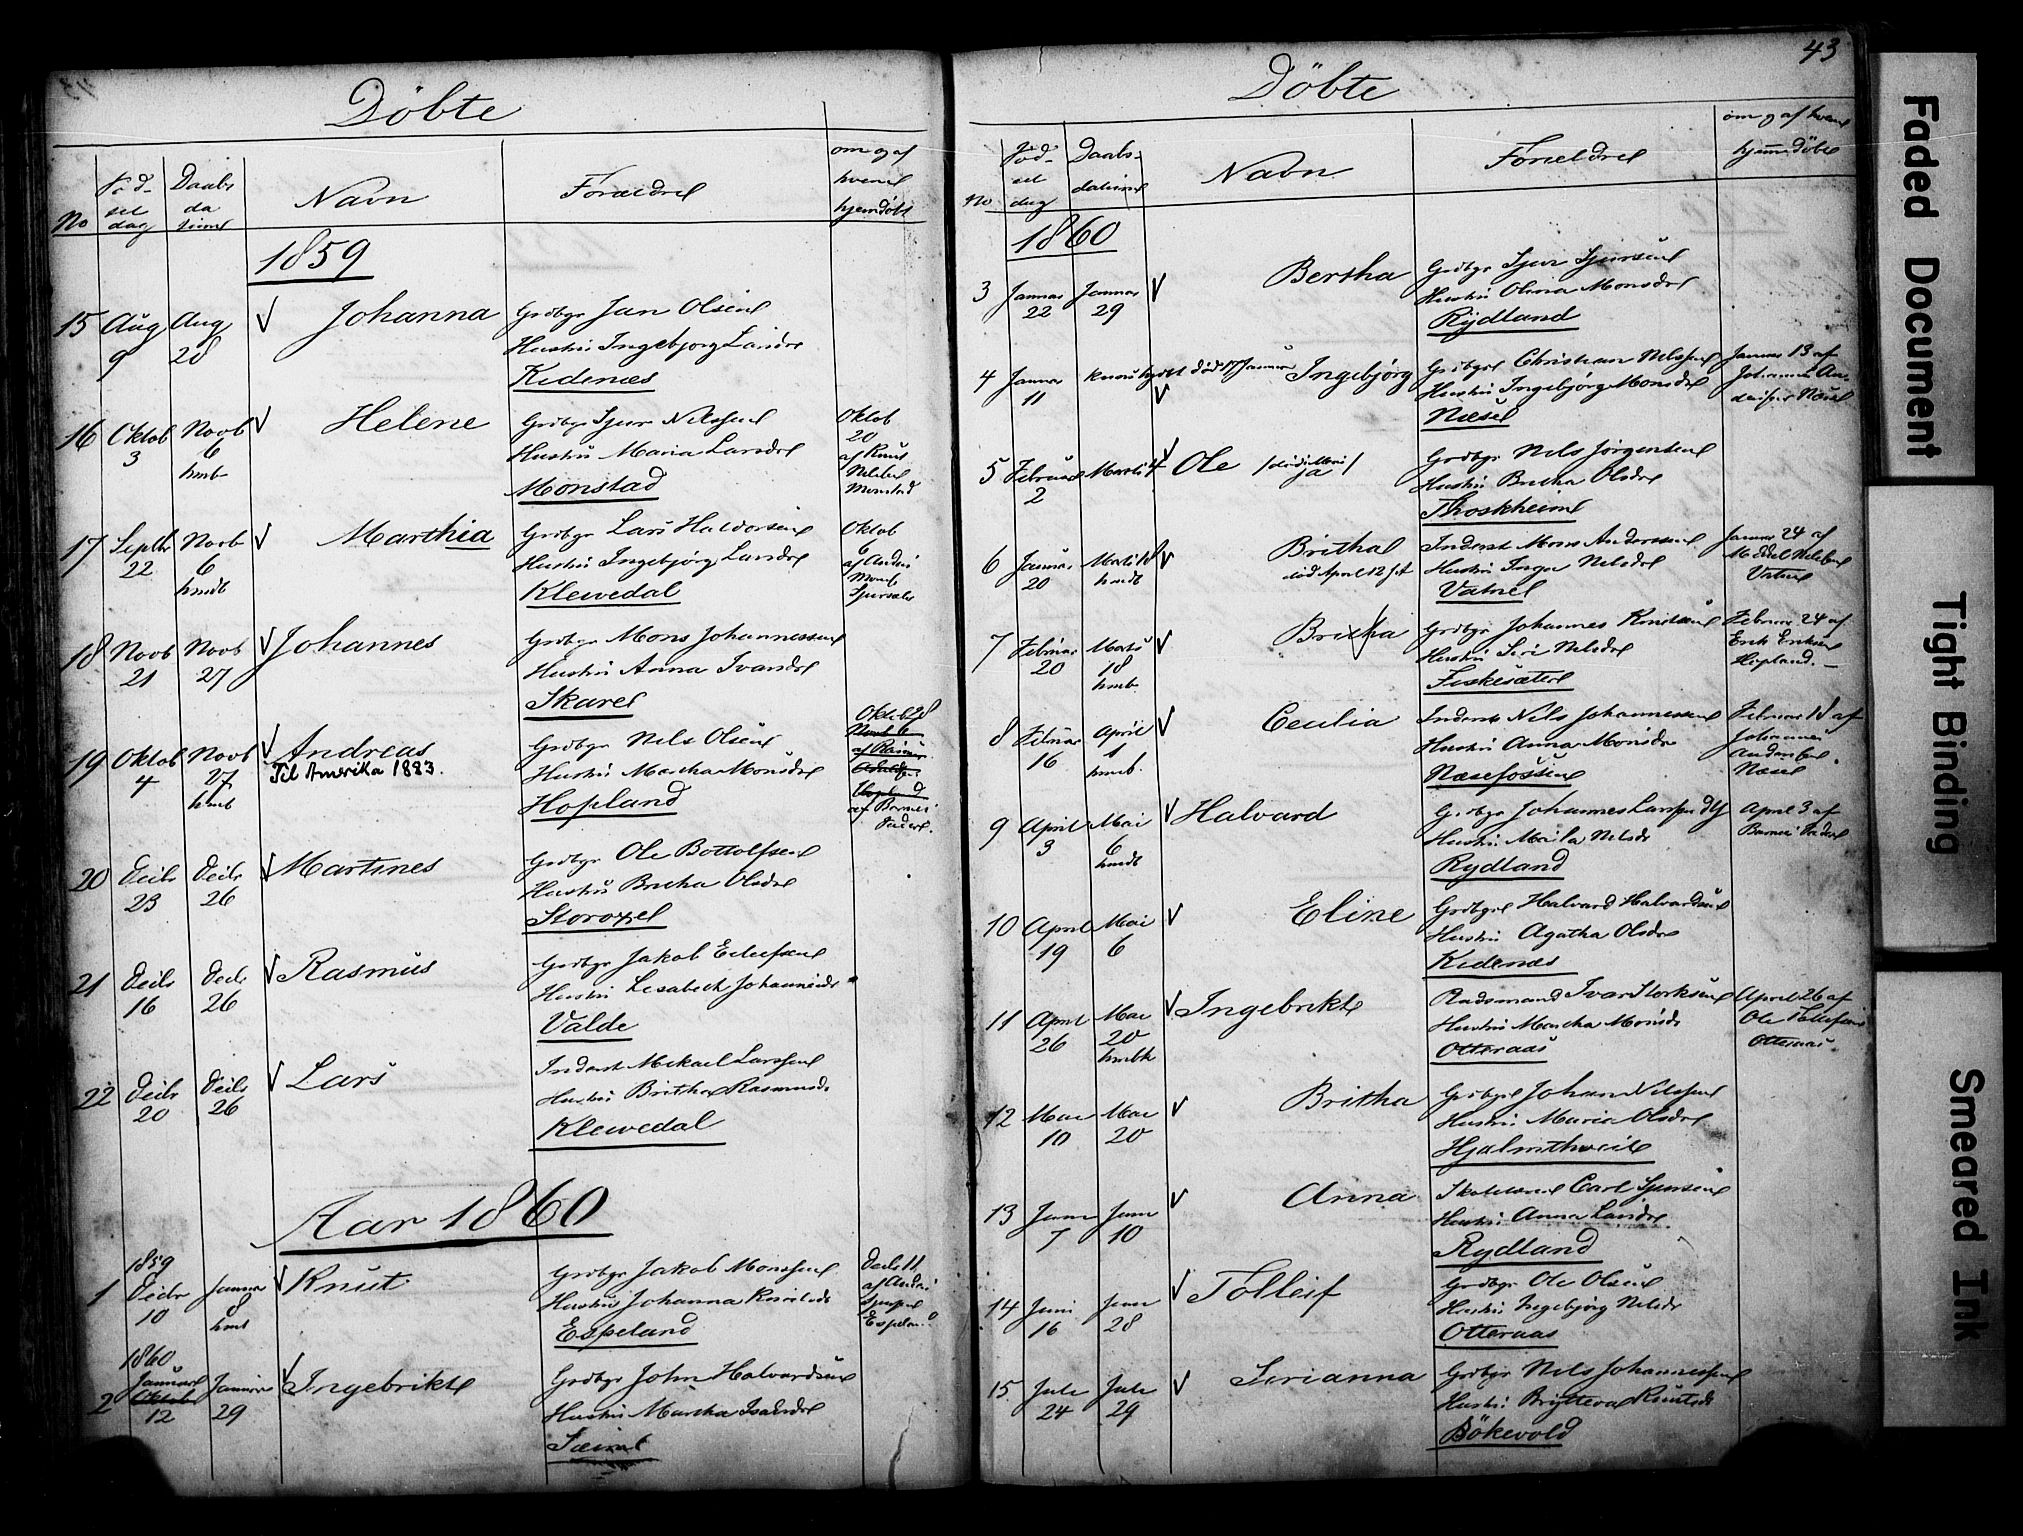 Döbte
No
Föd-
sel
dag
Daabs
da
tum
Navn
Forældre
om og af
hvem
hjemdöbt
1859
15 Aug 9 Aug 28 Johanna
Grdbgr Jan Olsen
Hustru Ingebjorg Larsdr
Kidenæs
16 Oktob 3 Novb 6 hmb Helene
Grdbgr Sjur Nilssen
Hustru Maria Larsdr
Monstad
Oktob
20
af Knut
Monstad
17 Septbr 22 Novb 6 hmdt Marthia
Grdbgr Lars Haldorsen
Hustru Ingebjörg Larsdr
Klewedal
Oktob
6
af Anders
Mons
18 Novb 21 Novb 27 Johannes
Grdbgr Mons Johannessen
Hustru Anna Ivarsdr
Skare
19 Oktob 4 Novb 27 hmt Andreas
Til Amerika 1883.
Grdbgr Nils Olsen
Hustru Martha Monsdr
Hopland
Oktob 28
af Barnets
Fader.
20 Decbr 23 Decbr 26 Martines
Grdbgr Ole Bottolfsen
Hustru Britha Olsdr
Storöxel
21 Decbr 16 Decbr 26 Rasmus
Grdbgr Jakob
Hustru Lisabeth Johannesdr
Valde
22 Decbr 20 Decbr 26 Lars
Inderst Mikael Larssen
Hustru Britha Rasmusdr
Klewedal
Aar 1860
1859
1 Decbr 10 Januar 8 hmt Knut
Grdbgr Jakob Monssen
Hustru Johanna Knutsdr
Espeland
Decbr 11
af Anders
Espeland
1860
2 Januar 12 Januar 29 Ingebrikt
Grdbgr John Halvardsen
Hustru Martha Isaksdr
43
Döbte
No
Föd-
sel
dag
Daabs-
datum
Navn
Forældre
om og af hvem
hjemdöbt
1860
3 Januar 22 Januar 29 Bertha
Grdbgr Sjur Sjursen
Hustru Olina Monsdr
Rydland
4 Januar 11 död Januar Ingebjörg
Grdbgr Christian Nilssen
Hustru Ingebjörg Monsdr
Næse
Januar 13 af
Johannes An-
Næse
5 Februar 2 Marts 4 Ole
Grdbgr Nils Jörgensen
Hustru Britha Olsdr
Throskheim
6 Januar 20 Marts 18 hmdt Britha
död April 12
Inderst Mons Anderssen
Hustru Inger Nilsdr
Vatne
Januar 24 af
Vatne
7 Februar 20 Marts 18 hmb Britha
Grdbgr Johannes Knutsen
Hustru Siri Nilsdr
Fiskesæter
Februar 24 af
Erik Eriksen
Hopland.
8 Februar 16 April 1 hmb. Cecilia
Inderst Nils Johannessen
Hustru Anna Monsdr
Næsefossen
Februar 18 af
Johannes
Anderssen
Næse
9 April 3 Mai 6 hmdt Halvard
Grdbgr Johannes Larssen
Hustru Nilsdr
Rydland
April 3 af
Barnets Fader
10 April 19 Mai 6 Eline
Grdbgr Halvard Halvardsen
Hustru Agatha Olsdr
Kidenæs
11 April 26 Mai 20 hmbt Ingebrikt
Ivar Storksen
Hustru Martha Monsdr
Otteraas
April 26 af
Ole
Otteraas
12 Mai 10 Mai 20 Britha
Grdbgr Johan Nilssen
Hustru Marie Olsdr
Hjalmthveit
13 Juni 7 Juni 10 Anna
Skolelærer Carl Sjursen
Hustru Anna Larsdr
Rydland
14 Juni 16 Juni 28 Tolleif
Grdbgr Ole Olsen
Hustru Ingebjörg Nilsdr
Otteraas
15 Juli 24 Juli 29 Serianna
Grdbgr Nils Johannessen
Hustru Bryteva Knutsdr
Bökevold
Faded Document
Tight Binding
Smeared Ink